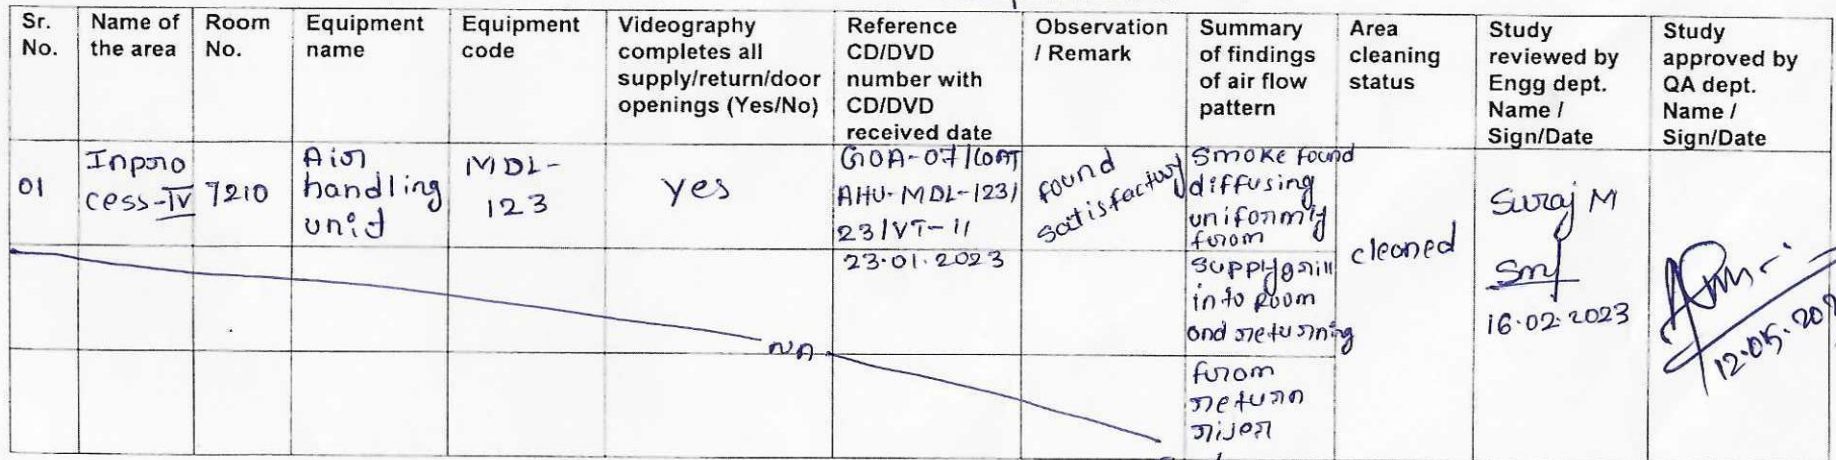 Sr. No.
Name of the area
Room No.
Equipment name
Equipment code
Videography completes all supply/return/door openings (Yes/No)
Reference CD/DVD number with CD/DVD received date
Observation / Remark
Summary of findings of air flow pattern
Area cleaning status
Study reviewed by Engg dept. Name / Sign/Date
Study approved by QA dept. Name / Sign/Date
01
Inpro
cess-IV
7210
Air
handling
unit
MDL-
123
Yes
AHU-MDL-123/
23/VT-11
23.01.2023
found
satisfactory
Smoke found
diffusing
uniformly
from
supply grill
into Room
and returning
from
return
riser
cleaned
Suraj M
16.02.2023
NA